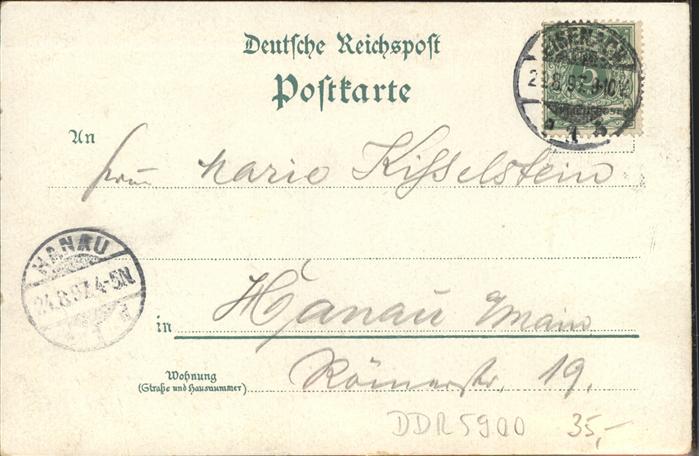 Deutsche Reichspost
Postkarte
EISENACH
8.97. 9-10V.
1
5
An
Frau Marie Kisselstein
HANAU
24.8.97. 4-5N.
1
in
Hanau Main
Wohnung
(Straße und Hausnummer)
Römerstr. 19.
DDR5900 35,-